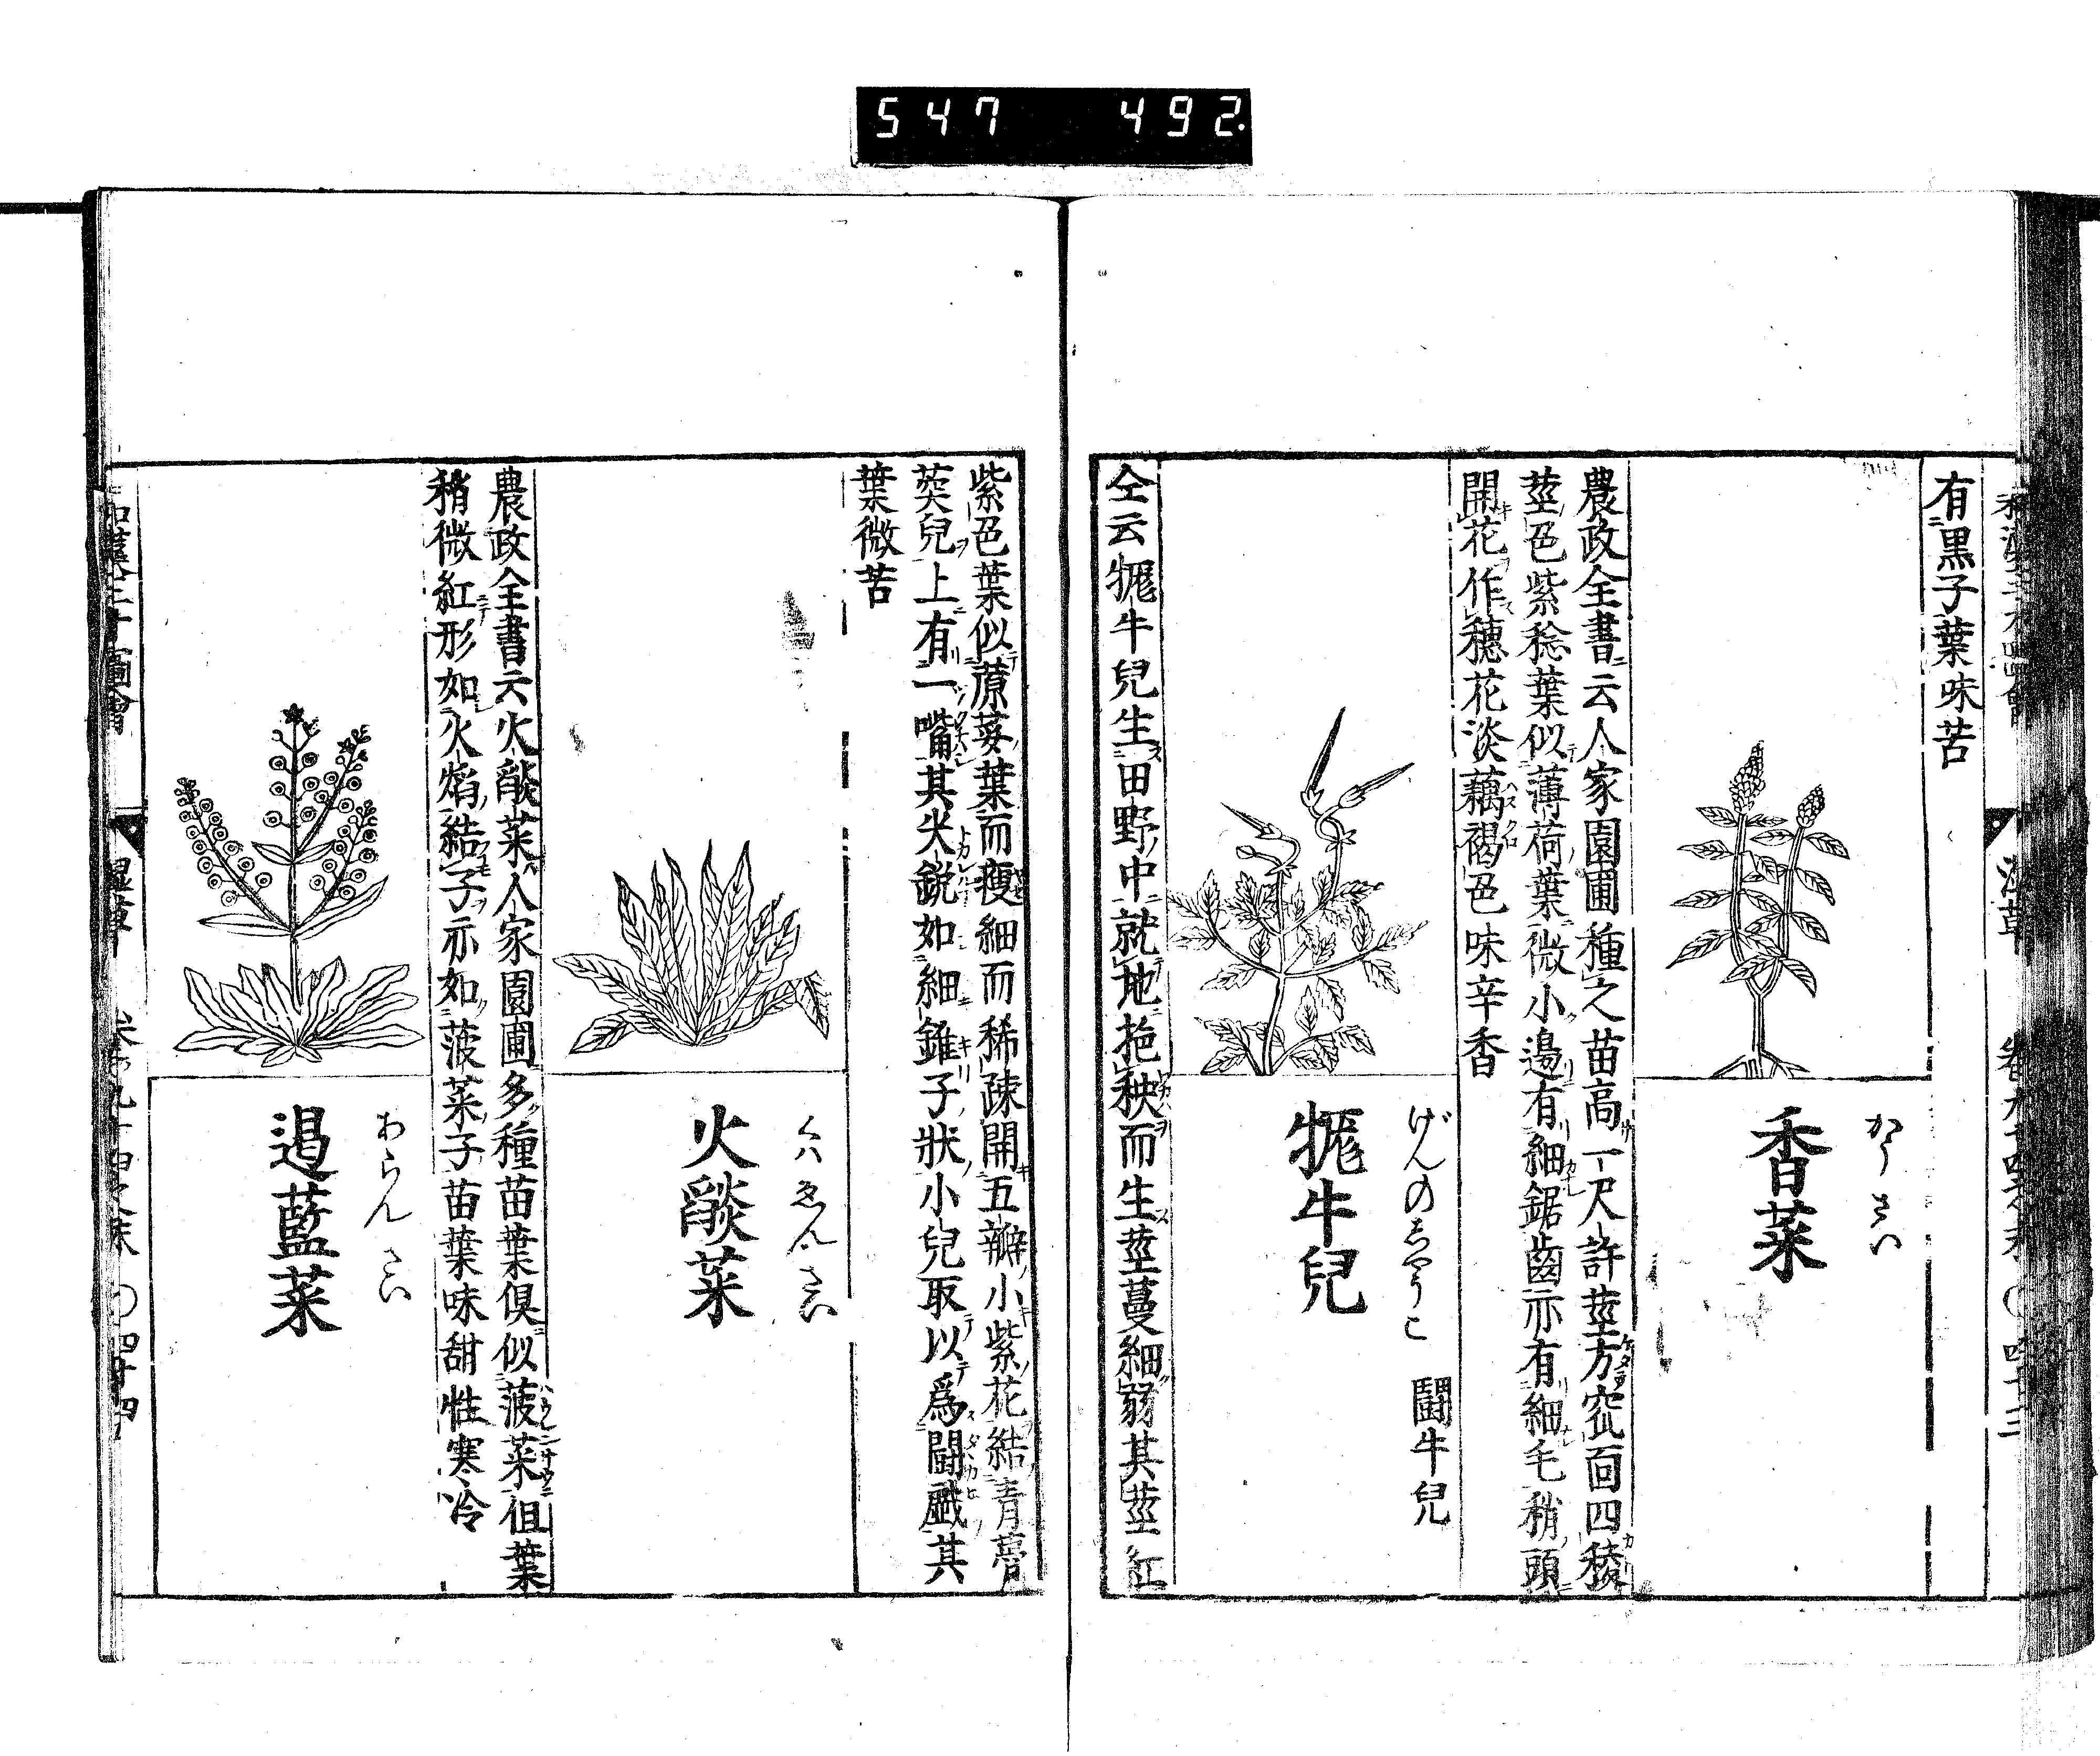 547 492
有黒子葉味苦
香菜
かうさい
農政全書云人家園圃種之苗高一尺許莖方窊面四稜
莖色紫稔葉似薄荷葉微小邊有細鋸齒亦有細毛稍頭
開花作穗花淡藕褐色味辛香
牻牛兒
げんのしやうこ
鬪牛兒
仝云牻牛兒生田野中就地拖秧而生莖蔓細弱其莖紅
紫色葉似蒝荽葉而瘦細而稀疎開五瓣小紫花結青蓇
葖兒上有一嘴其尖鋭如細錐子狀小兒取以爲鬪戲其
葉微苦
火燄菜
くハゑんさい
農政全書云火燄菜人家園圃多種苗葉俱似菠菜但葉
稍微紅形如火焰結子亦如菠菜子苗葉味甜性寒冷
遏藍菜
あらんさい
和漢三才圖會 濕草 卷ノ九十四之末 〇四十四